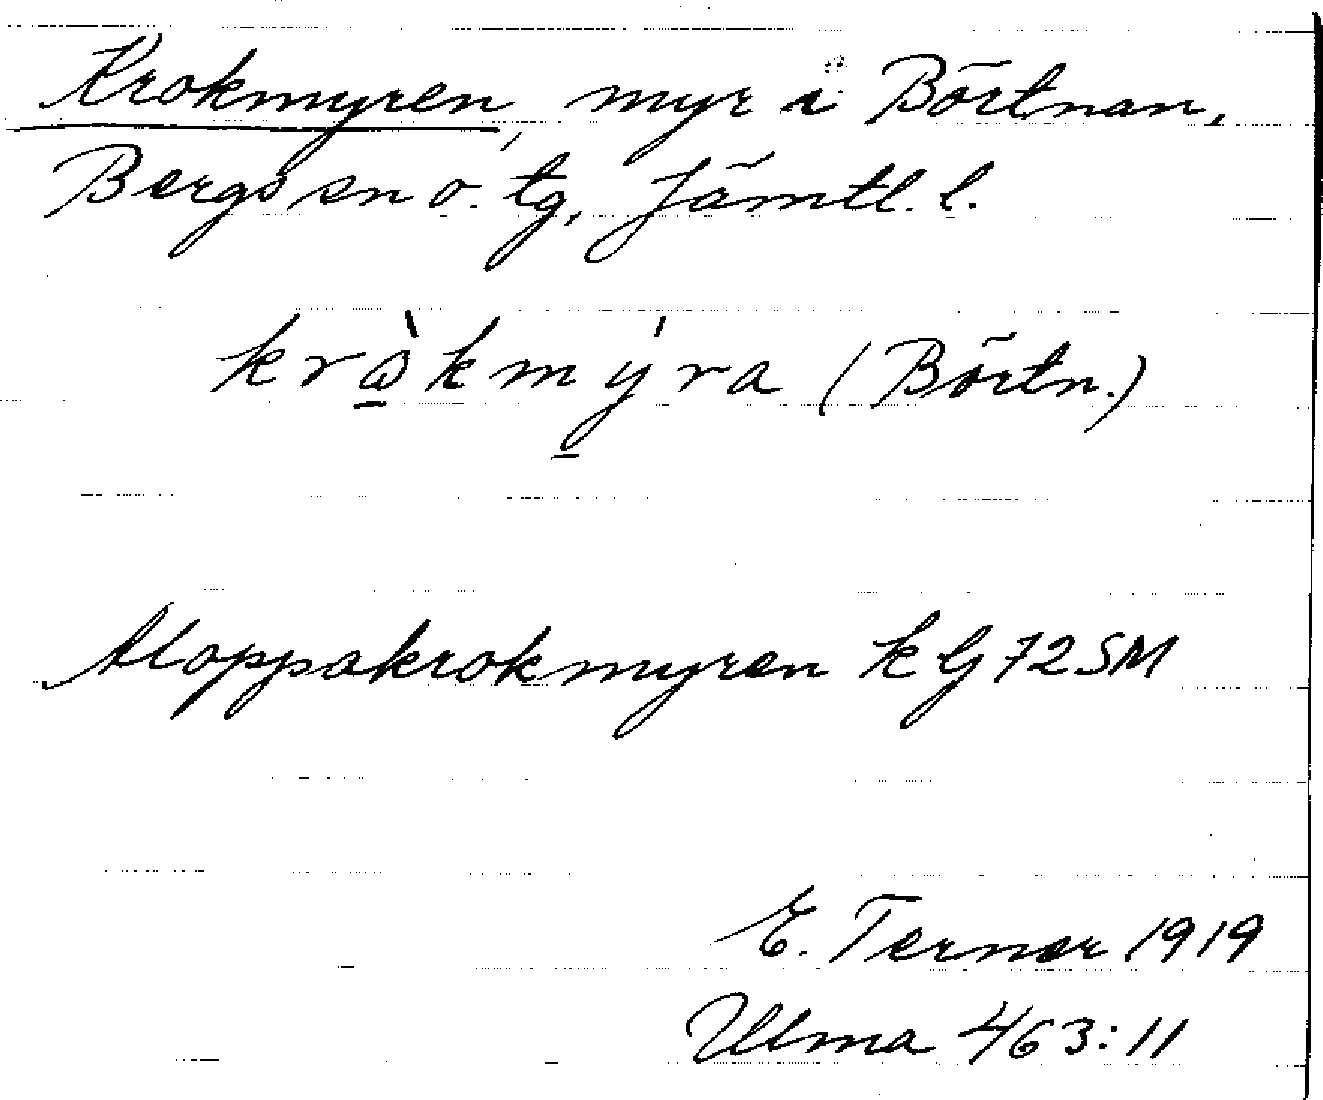 Krokmyren, myr i Börtnan,
Bergs sn o. tg, Jämtl. l.
krò̱kmý̱ra (Börtn.)
Aloppakrokmyren k Gj 72 SM
E. Terner 1919
Ulma 463:11